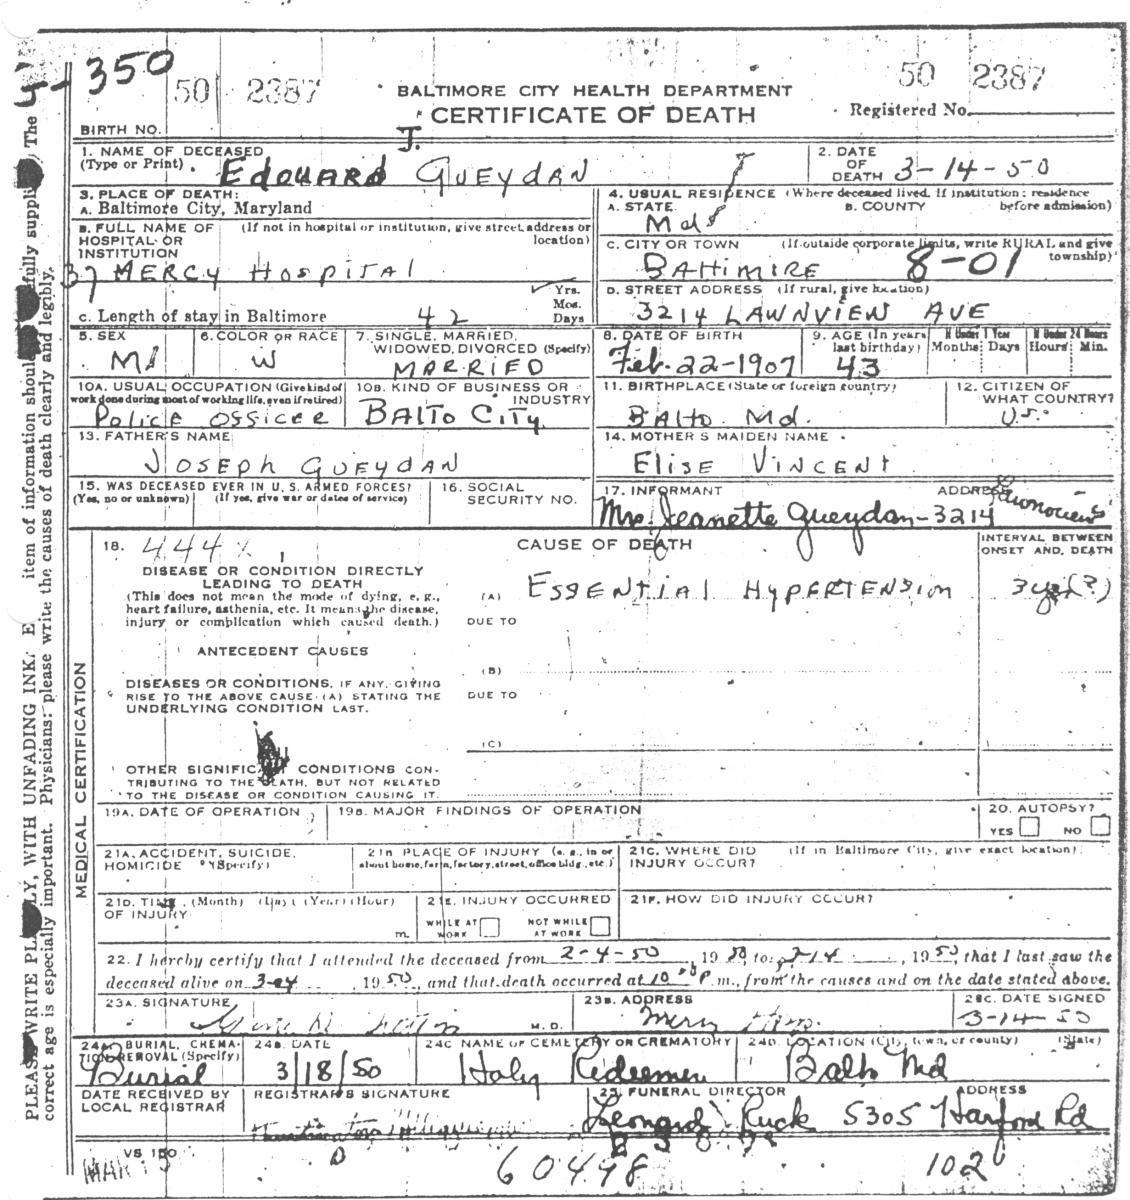 350
50 2387
50 2387
BALTIMORE CITY HEALTH DEPARTMENT
CERTIFICATE OF DEATH
Registered No.
BIRTH NO.
1. NAME OF DECEASED
(Type or Print)
EDOUARD J. GUEYDAN
2. DATE OF DEATH 3-14-50
3. PLACE OF DEATH:
A. Baltimore City, Maryland
B. FULL NAME OF HOSPITAL OR INSTITUTION (If not in hospital or institution, give street address or location)
37 MERCY HOSPITAL
C. Length of stay in Baltimore 42 Yrs. Mos. Days
4. USUAL RESIDENCE (Where deceased lived. If institution: residence before admission)
A. STATE B. COUNTY
Md
C. CITY OR TOWN (If outside corporate limits, write RURAL and give township)
BAltIMIRE 8-01
D. STREET ADDRESS (If rural, give location)
3214 LAWNVIEW AVE
5. SEX
6. COLOR OR RACE
W
7. SINGLE, MARRIED, WIDOWED, DIVORCED (Specify)
MARRIED
8. DATE OF BIRTH
Feb-22-1907
9. AGE (In years last birthday)
43
If Under 1 Year Months Days
If Under 24 Hours Hours Min.
10A. USUAL OCCUPATION (Give kind of work done during most of working life, even if retired)
POLICE OSSICER
10B. KIND OF BUSINESS OR INDUSTRY
BALTO CITY
11. BIRTHPLACE (State or foreign country)
BALTO. Md.
12. CITIZEN OF WHAT COUNTRY?
U.S.
13. FATHER'S NAME
JOSEPH GUEYDAN
14. MOTHER'S MAIDEN NAME
ELISE VINCENT
15. WAS DECEASED EVER IN U.S. ARMED FORCES?
(Yes, no or unknown) (If yes, give war or dates of service)
16. SOCIAL SECURITY NO.
17. INFORMANT ADDRESS
Mrs. Jeanette Gueydan - 3214 Lawnview
MEDICAL CERTIFICATION
18. 444X
CAUSE OF DEATH
INTERVAL BETWEEN ONSET AND DEATH
I
DISEASE OR CONDITION DIRECTLY LEADING TO DEATH
(This does not mean the mode of dying, e.g., heart failure, asthenia, etc. It means the disease, injury or complication which caused death.)
(A) ESSENTIAL HYPERTENSION 3 yrs(?)
DUE TO
ANTECEDENT CAUSES
(B)
DISEASES OR CONDITIONS, IF ANY, GIVING RISE TO THE ABOVE CAUSE (A) STATING THE UNDERLYING CONDITION LAST.
DUE TO
(C)
OTHER SIGNIFICANT CONDITIONS CONTRIBUTING TO THE DEATH, BUT NOT RELATED TO THE DISEASE OR CONDITION CAUSING IT.
19A. DATE OF OPERATION
19B. MAJOR FINDINGS OF OPERATION
20. AUTOPSY?
YES NO
21A. ACCIDENT, SUICIDE, HOMICIDE (Specify)
21B PLACE OF INJURY (e.g., in or about home, farm, factory, street, office bldg., etc.)
21C. WHERE DID INJURY OCCUR? (If in Baltimore City, give exact location)
21D. TIME OF INJURY (Month) (Day) (Year) (Hour) m.
21E. INJURY OCCURRED
WHILE AT WORK NOT WHILE AT WORK
21F. HOW DID INJURY OCCUR?
22. I hereby certify that I attended the deceased from 2-4-50, 1950, to 3-14, 1950, that I last saw the
deceased alive on 3-14, 1950, and that death occurred at 10 P.m., from the causes and on the date stated above.
23A. SIGNATURE M.D.
23B. ADDRESS
Mercy Hosp.
23C. DATE SIGNED
3-14-50
24A. BURIAL, CREMATION, REMOVAL (Specify)
Burial
24B. DATE
3/18/50
24C NAME OF CEMETERY OR CREMATORY
Holy Redeemer
24D. LOCATION (City, town, or county) (State)
Balto Md
DATE RECEIVED BY LOCAL REGISTRAR
REGISTRAR'S SIGNATURE
25. FUNERAL DIRECTOR ADDRESS
Leonard J. Ruck 5305 Harford Rd
VS 150
60498
102
PLEASE WRITE PLAINLY, WITH UNFADING INK. item of information should fully supplied. The
correct age is especially important. Physicians: please write the causes of death clearly and legibly.